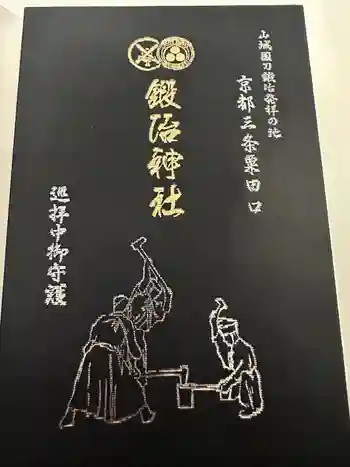 山城国刀鍛冶発祥の地
京都三条粟田口
鍛冶神社
巡拝中御守護